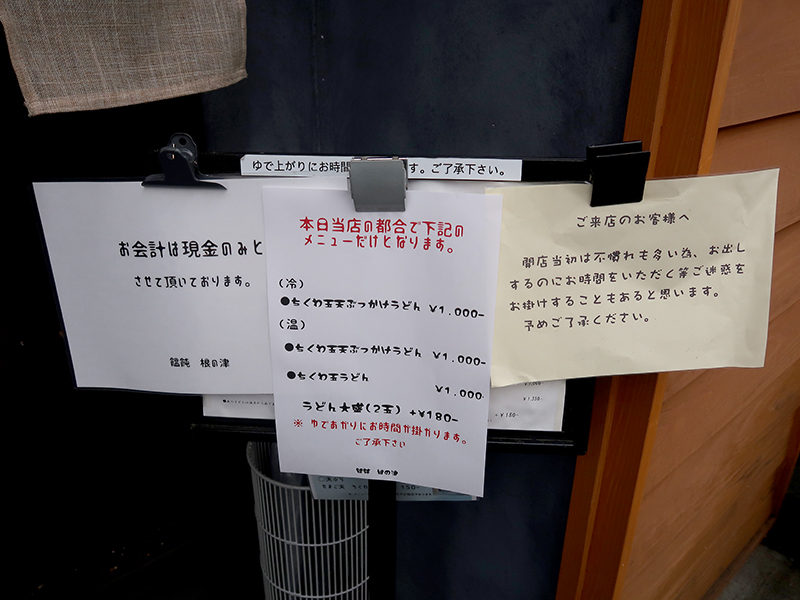 ゆで上がりにお時間
す。ご了承下さい。
お会計は現金のみと
させて頂いております。
饂飩 根の津
本日当店の都合で下記の
メニューだけとなります。
(冷)
●ちくわ玉天ぶっかけうどん ¥1.000-
(温)
●ちくわ玉天ぶっかけうどん ¥1.000-
●ちくわ玉うどん ¥1.000-
うどん大盛(2玉) +¥180-
※ ゆであがりにお時間が掛かります。
ご了承下さい
ご来店のお客様へ
開店当初は不慣れも多い為、お出し
するのにお時間をいただく等ご迷惑を
お掛けすることもあると思います。
予めご了承ください。